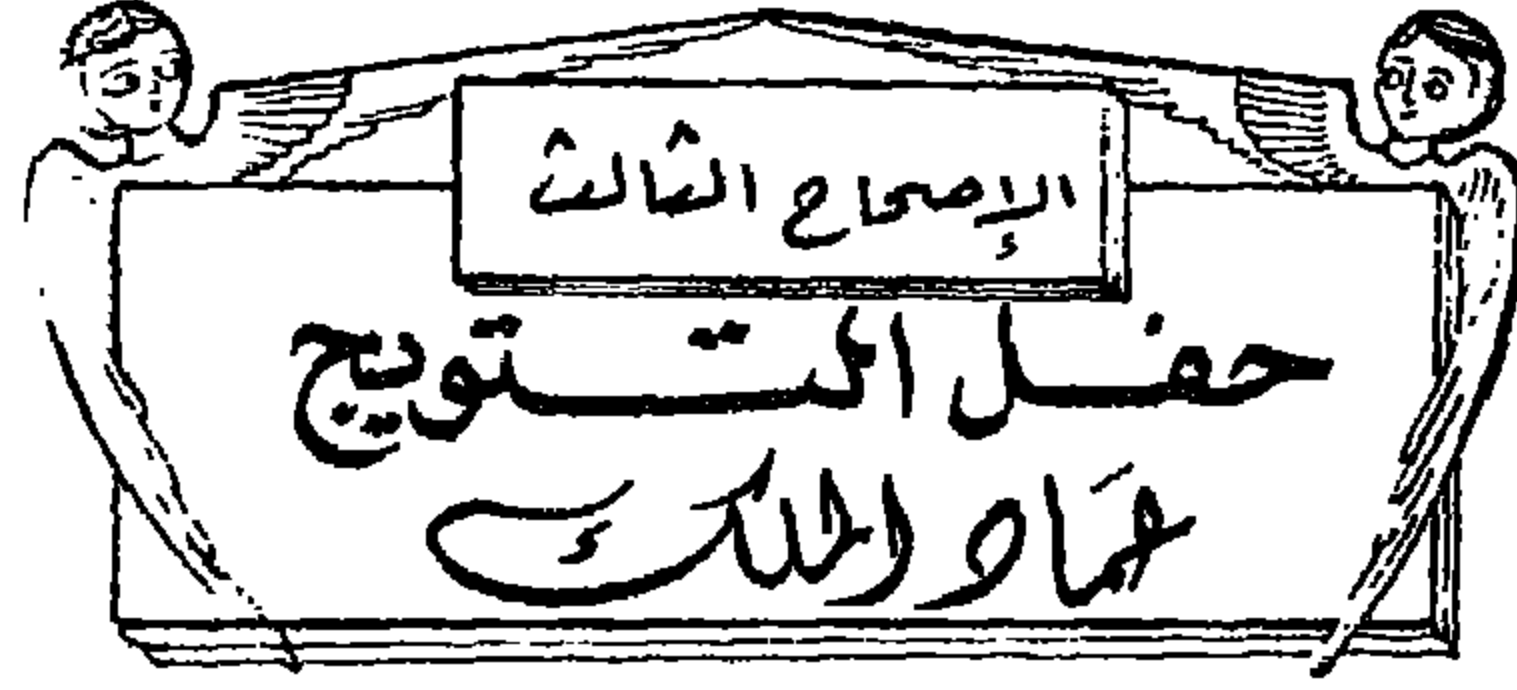 الإصحاح الثالث
حفل التتويج
عماد الملك